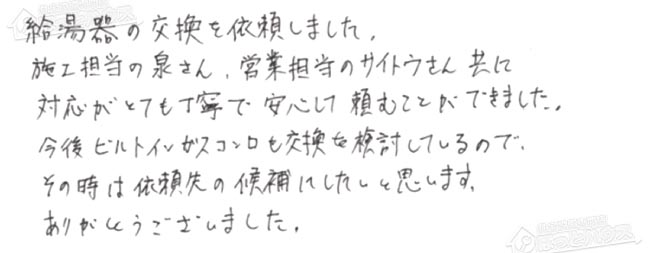 給湯器の交換を依頼しました。
施工担当の泉さん、営業担当のサイトウさん共に
対応がとても丁寧で安心して頼むことができました。
今後ビルトインガスコンロも交換を検討しているので、
その時は依頼先の候補にしたいと思います。
ありがとうございました。